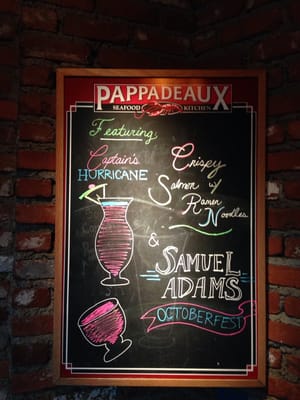 PAPPADEAUX
SEAFOOD KITCHEN
Featuring
Captain's
HURRICANE
Crispy
Salmon w/
Ramen
Noodles
&
SAMUEL
ADAMS
OCTOBERFEST